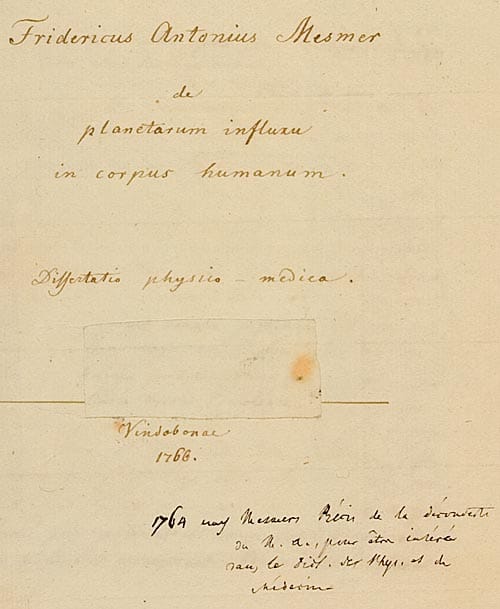 Fridericus Antonius Mesmer
de
planetarum influxu
in corpus humanum.
Dissertatio physico-medica.
Vindobonae
1766.
Mesmers Précis de la découverte
du M. a., pour être inséré
dans le dict. der Phys. et de
Médecine